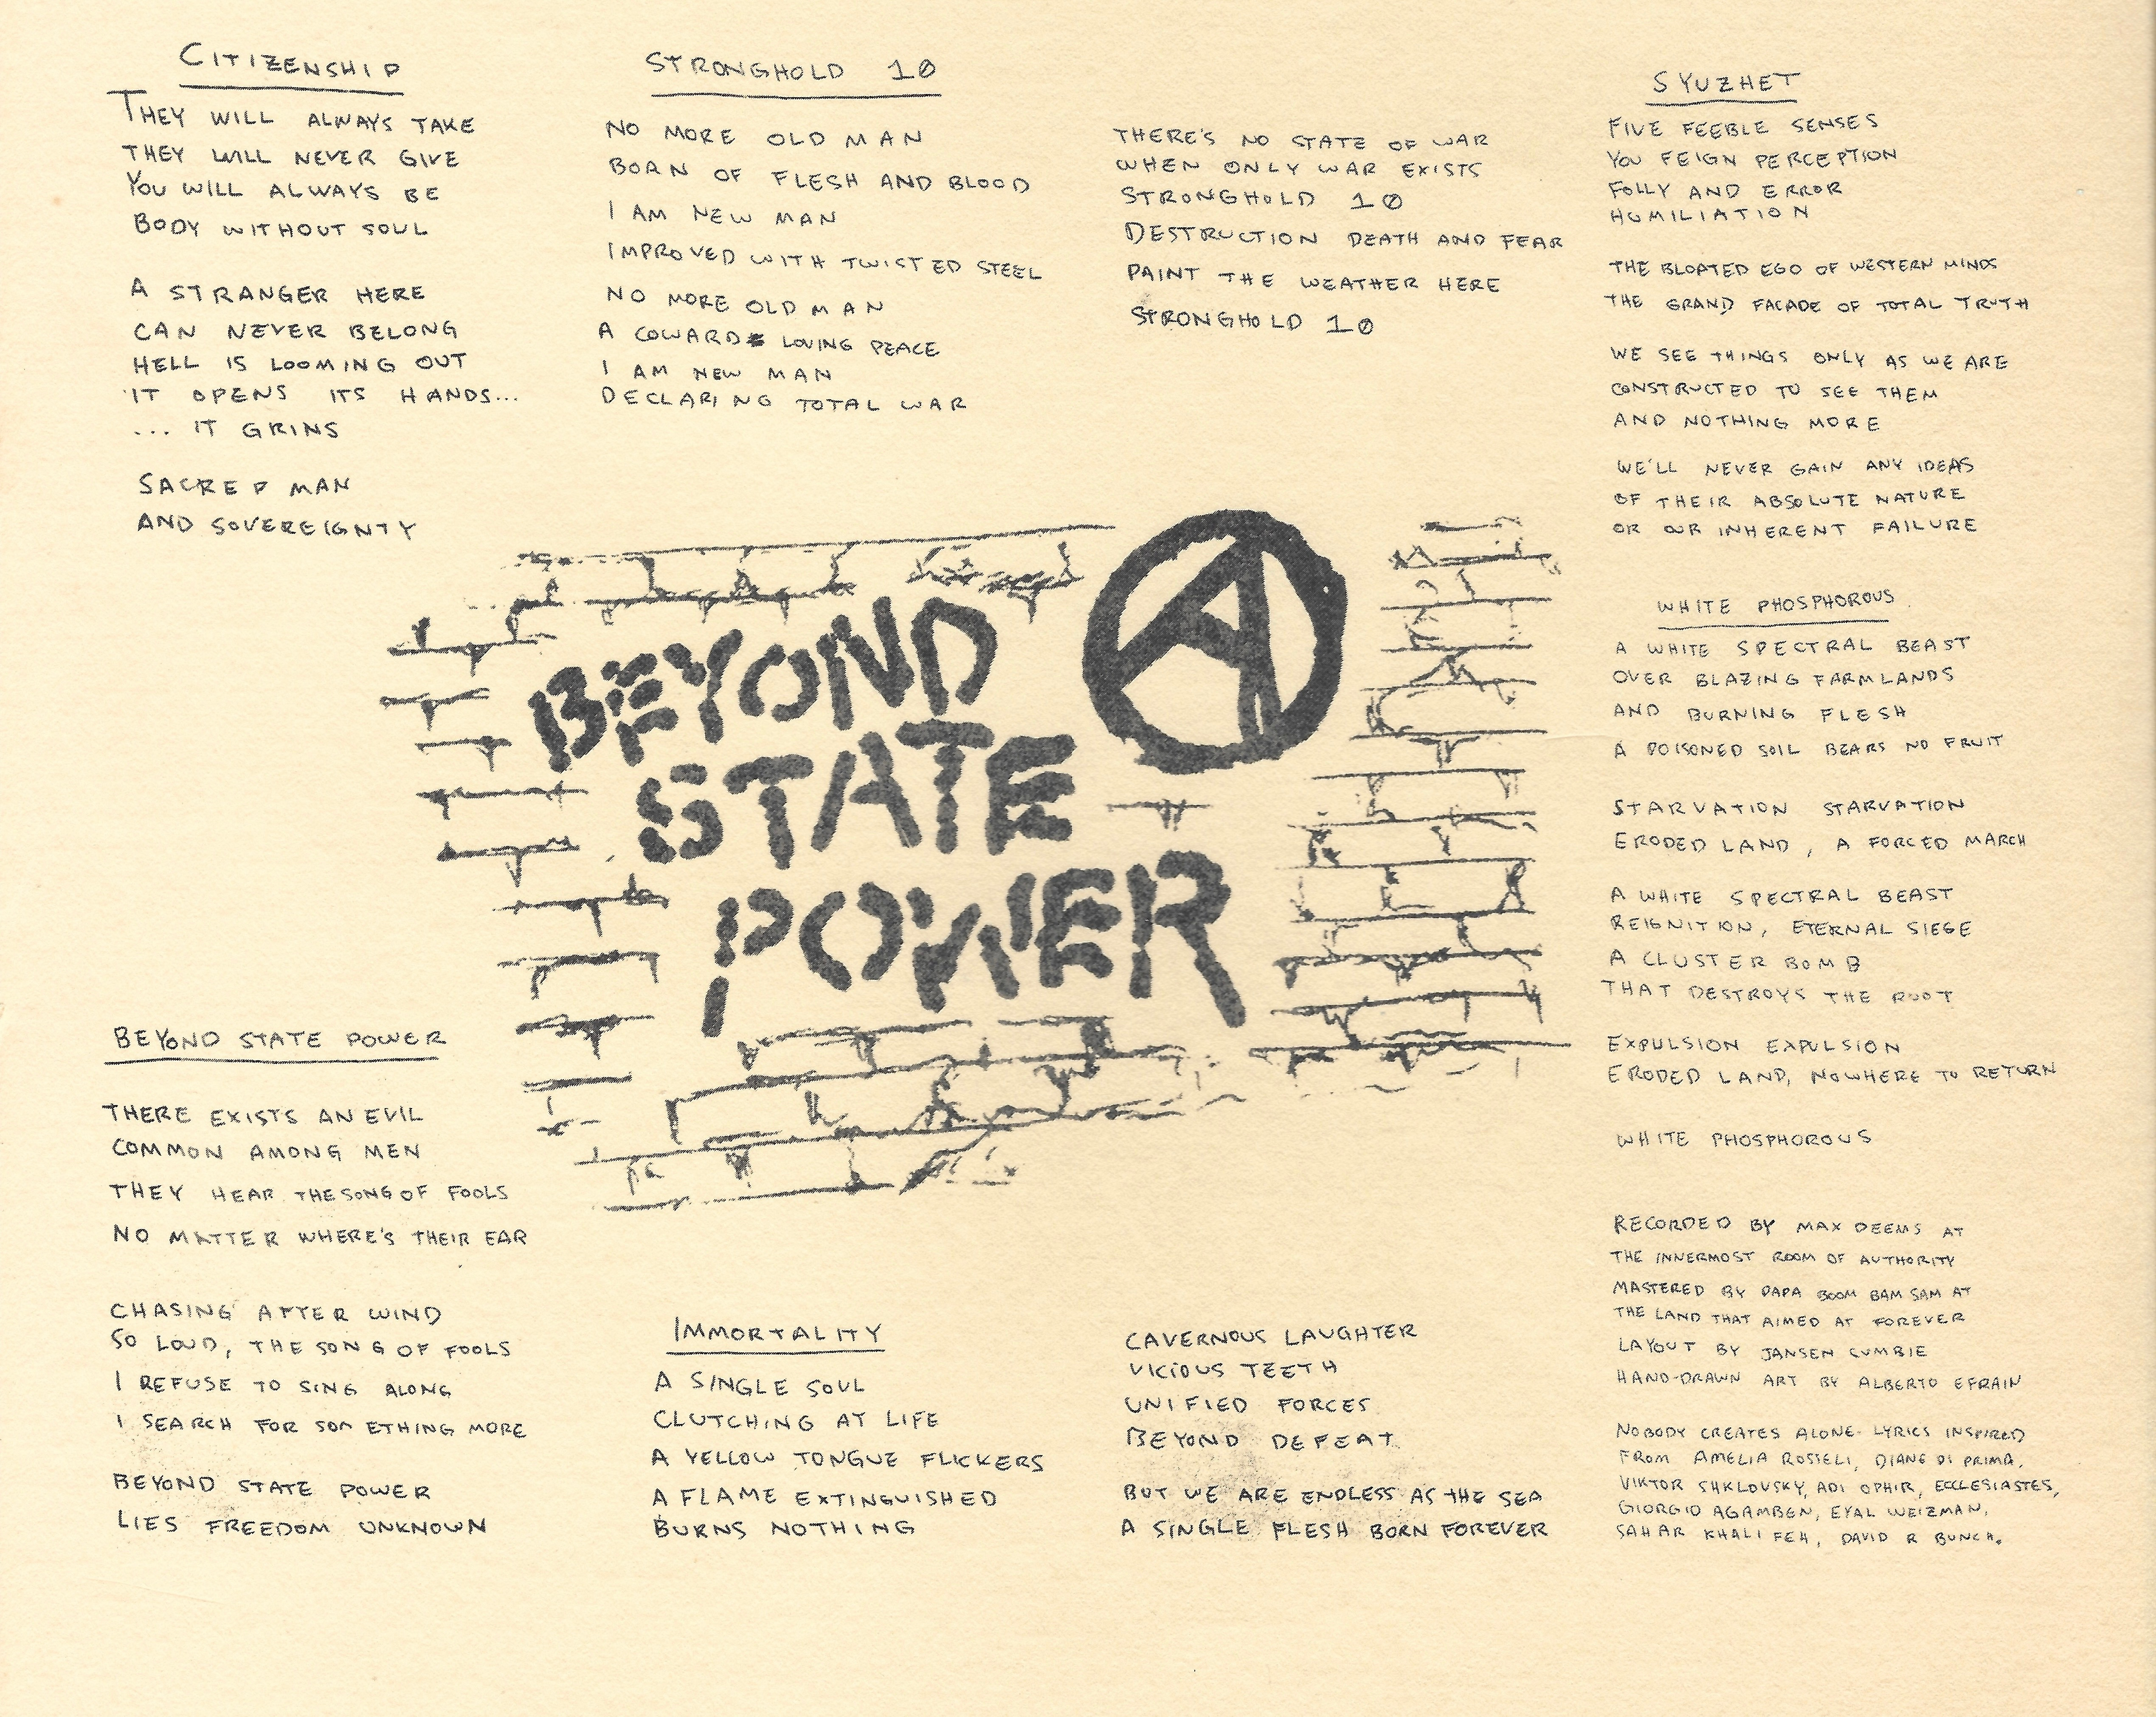 CITIZENSHIP
THEY WILL ALWAYS TAKE
THEY WILL NEVER GIVE
YOU WILL ALWAYS BE
BODY WITHOUT SOUL
A STRANGER HERE
CAN NEVER BELONG
HELL IS LOOMING OUT
IT OPENS ITS HANDS...
... IT GRINS
SACRED MAN
AND SOVEREIGNTY
STRONGHOLD 10
NO MORE OLD MAN
BORN OF FLESH AND BLOOD
I AM NEW MAN
IMPROVED WITH TWISTED STEEL
NO MORE OLD MAN
A COWARD LOVING PEACE
I AM NEW MAN
DECLARING TOTAL WAR
THERE'S NO STATE OF WAR
WHEN ONLY WAR EXISTS
STRONGHOLD 10
DESTRUCTION DEATH AND FEAR
PAINT THE WEATHER HERE
STRONGHOLD 10
SYUZHET
FIVE FEEBLE SENSES
YOU FEIGN PERCEPTION
FOLLY AND ERROR
HUMILIATION
THE BLOATED EGO OF WESTERN MINDS
THE GRAND FACADE OF TOTAL TRUTH
WE SEE THINGS ONLY AS WE ARE
CONSTRUCTED TO SEE THEM
AND NOTHING MORE
WE'LL NEVER GAIN ANY IDEAS
OF THEIR ABSOLUTE NATURE
OR OUR INHERENT FAILURE
WHITE PHOSPHOROUS
A WHITE SPECTRAL BEAST
OVER BLAZING FARMLANDS
AND BURNING FLESH
A POISONED SOIL BEARS NO FRUIT
STARVATION STARVATION
ERODED LAND, A FORCED MARCH
A WHITE SPECTRAL BEAST
REIGNITION, ETERNAL SIEGE
A CLUSTER BOMB
THAT DESTROYS THE ROOT
EXPULSION EXPULSION
ERODED LAND, NOWHERE TO RETURN
WHITE PHOSPHOROUS
BEYOND
STATE
POWER
BEYOND STATE POWER
THERE EXISTS AN EVIL
COMMON AMONG MEN
THEY HEAR THE SONG OF FOOLS
NO MATTER WHERE'S THEIR EAR
CHASING AFTER WIND
SO LOUD, THE SONG OF FOOLS
I REFUSE TO SING ALONG
I SEARCH FOR SOMETHING MORE
BEYOND STATE POWER
LIES FREEDOM UNKNOWN
IMMORTALITY
A SINGLE SOUL
CLUTCHING AT LIFE
A YELLOW TONGUE FLICKERS
A FLAME EXTINGUISHED
BURNS NOTHING
CAVERNOUS LAUGHTER
VICIOUS TEETH
UNIFIED FORCES
BEYOND DEFEAT
BUT WE ARE ENDLESS AS THE SEA
A SINGLE FLESH BORN FOREVER
RECORDED BY MAX DEEMS AT
THE INNERMOST ROOM OF AUTHORITY
MASTERED BY PAPA BOOM BAM SAM AT
THE LAND THAT AIMED AT FOREVER
LAYOUT BY JANSEN CUMBIE
HAND-DRAWN ART BY ALBERTO EFRAIN
NOBODY CREATES ALONE. LYRICS INSPIRED
FROM AMELIA ROSSELI, DIANE DI PRIMA,
VIKTOR SHKLOVSKY, ADI OPHIR, ECCLESIASTES,
GIORGIO AGAMBEN, EYAL WEIZMAN,
SAHAR KHALIFEH, DAVID R BUNCH.